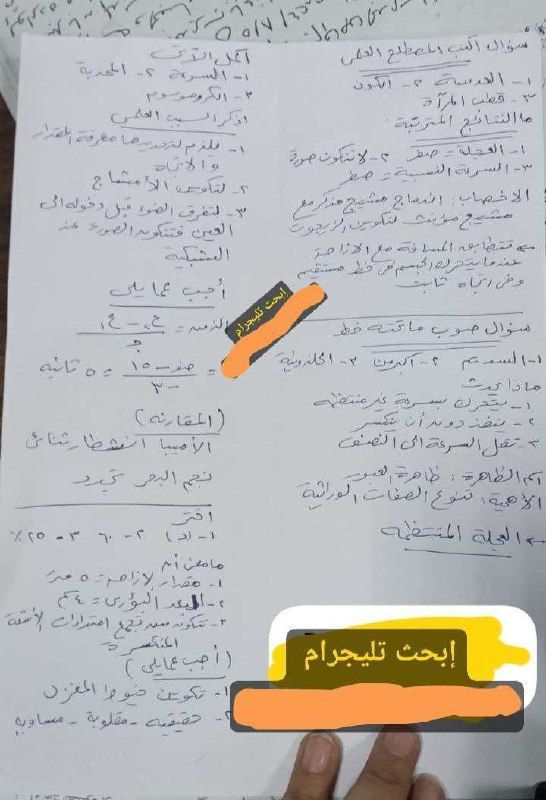 سؤال اكتب المصطلح العلمى
١- العدسة ٢- الكون
٣- قطب المرآة
ما النتائج المترتبة
١- العجلة = صفر ٢- لا تتكون صورة
٣- السرعة النسبية = صفر
الاخصاب: اندماج مشيج مذكر مع
مشيج مؤنث لتكوين الزيجوت
تتطابق المسافة مع الازاحة
عندما يتحرك الجسم فى خط مستقيم
وفى اتجاه ثابت
سؤال صوب ما تحته خط
١- السديم ٢- اكبر من ٣- الحلزونية
ماذا يحدث
١- يتحرك بسرعة غير منتظمة
٢- ينفذ دون أن ينكسر
٣- تقل السرعة الى النصف
اسم الظاهرة: ظاهرة العبور
الأهمية: تنوع الصفات الوراثية
العجلة المنتظمة
أكمل الآتى
١- السرعة ٢- المحدبة
٣- الكروموسوم
اذكر السبب العلمى
١- يلزم لتحديدها معرفة المقدار
والاتجاه
٢- لتكوين الأمشاج
٣- لتفرق الضوء قبل دخوله الى
العين فتتكون الصورة
الشبكية
أجب عما يلى
الزمن = ع٢ - ع١
ج
= صفر - ١٥ = ٥ ثانية
- ٣
(المقارنة)
الأميبا انشطار ثنائى
نجم البحر تجدد
أختر
١- (د) ٢- ٦٠ ٣- ٢٥٪
١- مقدار الازاحة = ٥ متر
٢- البعد البؤرى = ٤ سم
٣- تتكون عند تجمع امتدادات الأشعة
المنكسرة
(أجب عما يلى)
١- تكوين خيوط المغزل
٢- حقيقية - مقلوبة - مساوية
إبحث تليجرام
إبحث تليجرام